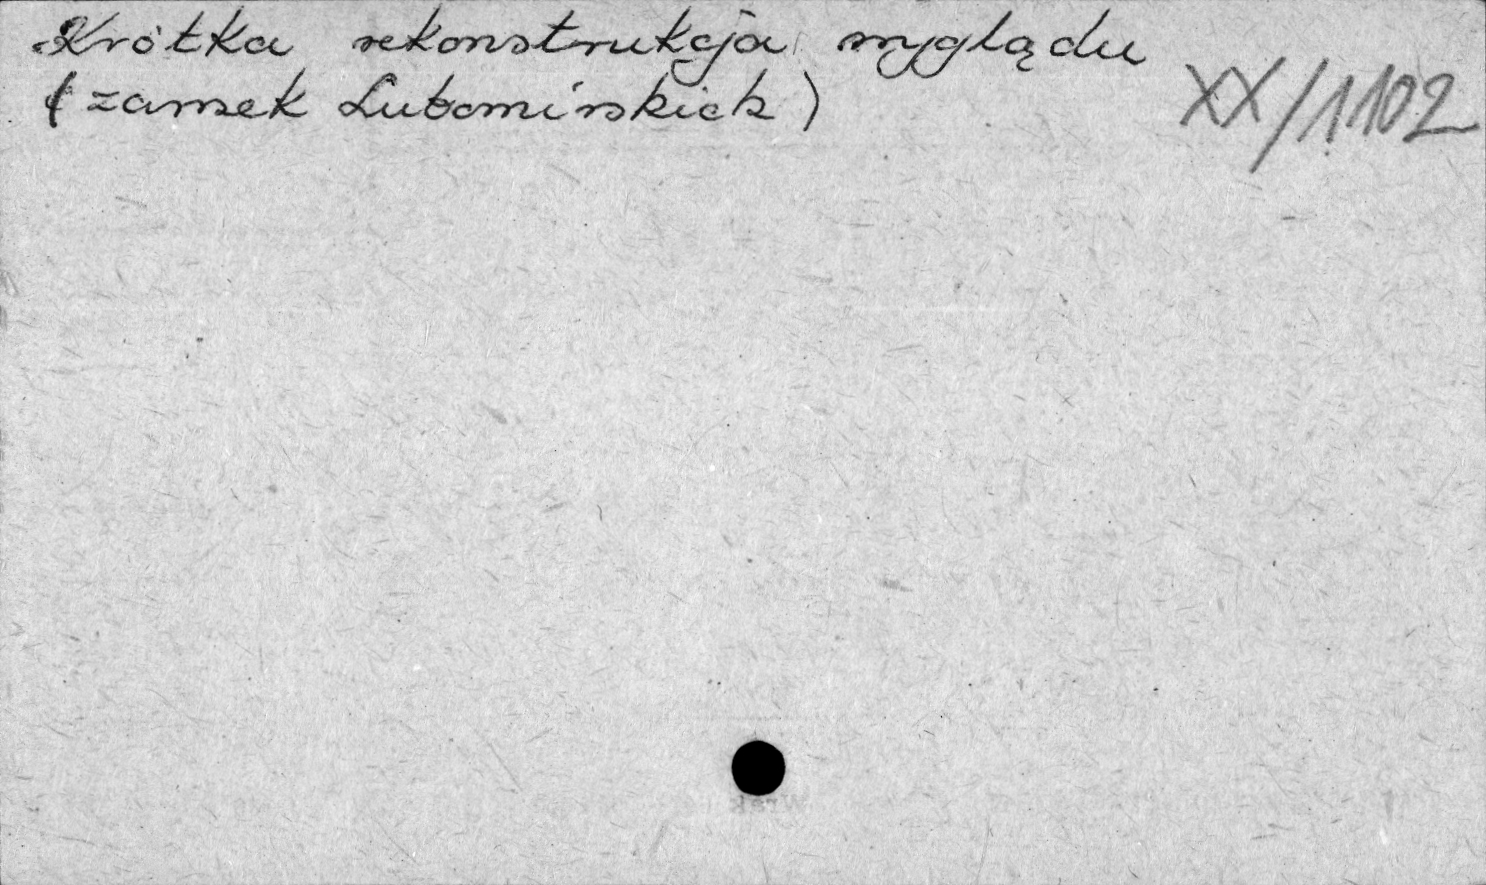 Krótka rekonstrukcja wyglądu
(zamek Lubomirskich)
XX/1102